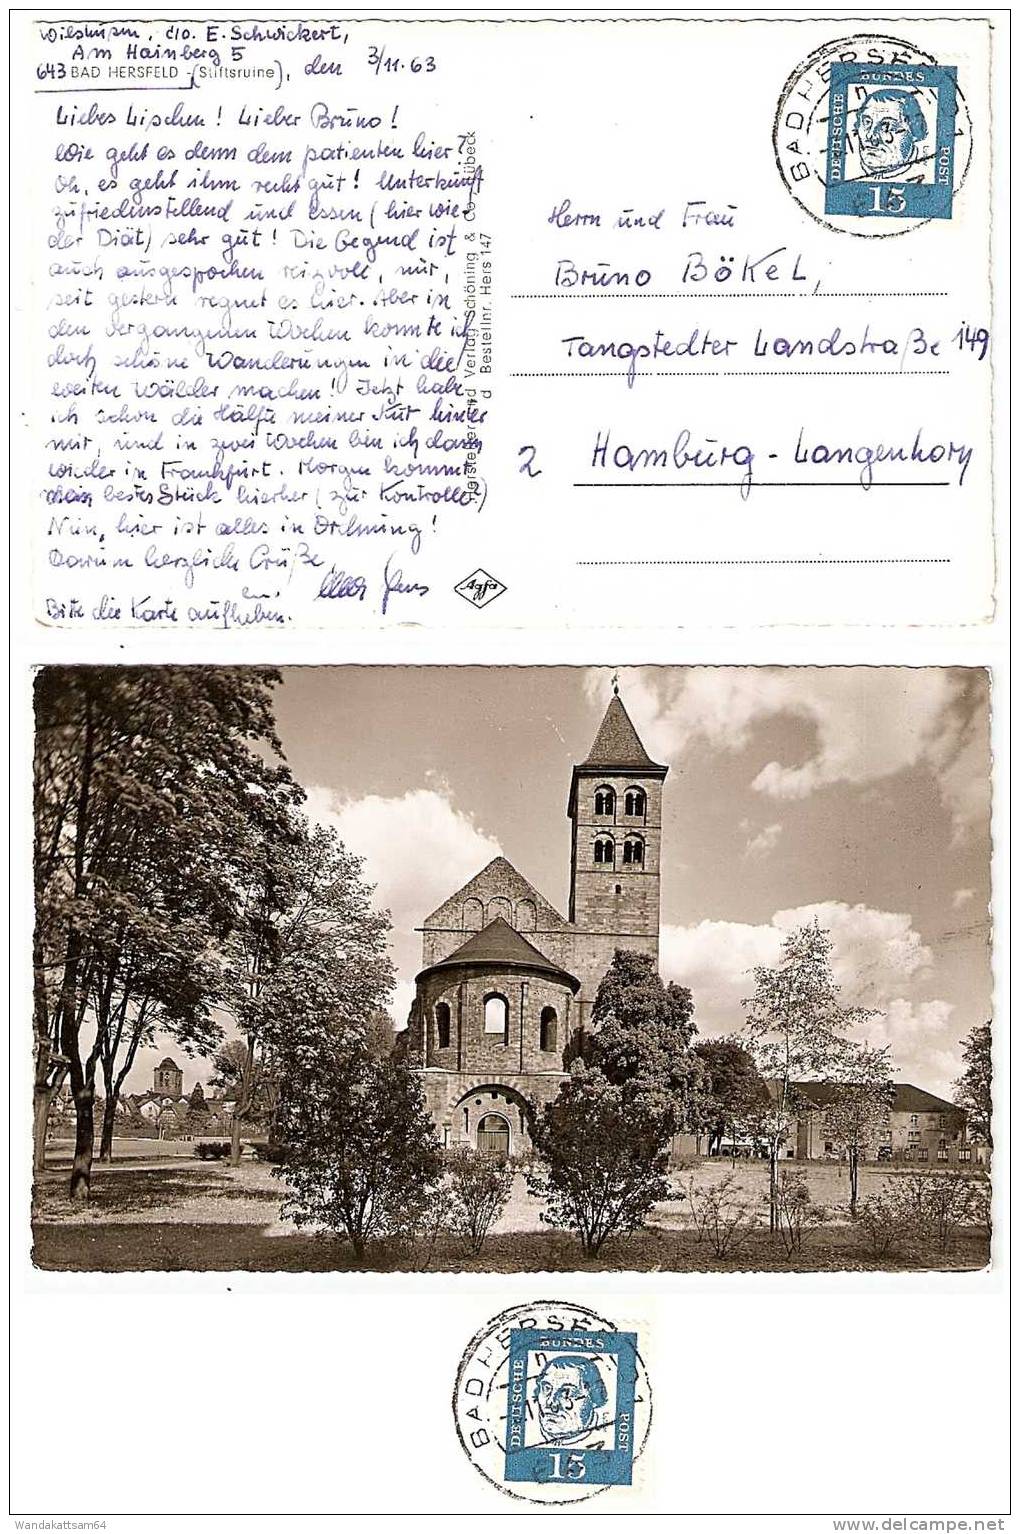 Wilshusen, c/o. E. Schwickert,
Am Hainberg 5
643 BAD HERSFELD (Stiftsruine), den 3/11.63
Liebes Lieschen! Lieber Bruno!
Wie geht es denn dem patienten hier?
Oh, es geht ihm recht gut! Unterkunft
zufriedenstellend und essen (hier wie-
der Diät) sehr gut! Die Gegend ist
auch ausgesprochen reizvoll, nur,
seit gestern regnet es hier. Aber in
den vergangenen Wochen konnte ich
doch schöne Wanderungen in die
weiten Wälder machen! Jetzt habe
ich schon die Hälfte meiner Kur hinter
mir, und in zwei Wochen bin ich dann
wieder in Frankfurt. Morgen kommt
mein bestes Stück hierher (zur Kontrolle!)
Nun, hier ist alles in Ordnung!
Darum herzliche Grüße,
Bitte die Karte aufheben.
Hersteller und Verlag Schöning & Co Lübeck
d Bestellnr. Hers 147
Agfa
BAD HERSFELD 1
DEUTSCHE BUNDES POST
15
Herrn und Frau
Bruno BÖKEL,
Tangstedter Landstraße 149
2 Hamburg - Langenhorn
BAD HERSFELD 1
DEUTSCHE BUNDES POST
15
Wandakattsam64
www.delcampe.net